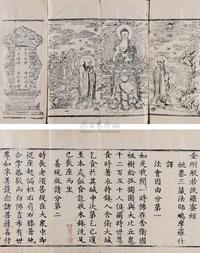 金剛般若波羅蜜經
姚秦三藏法師鳩摩羅什
譯
法會因由分第一
如是我聞一時佛在舍衛國
祇樹給孤獨園與大比丘眾
千二百五十人俱爾時世尊
食時著衣持鉢入舍衛大城
乞食於其城中次第乞已還
至本處飯食訖收衣鉢洗足
已敷座而坐
善現啟請分第二
時長老須菩提在大眾中即
從座起偏袒右肩右膝著地
合掌恭敬而白佛言希有世
尊如來善護念諸菩薩善付